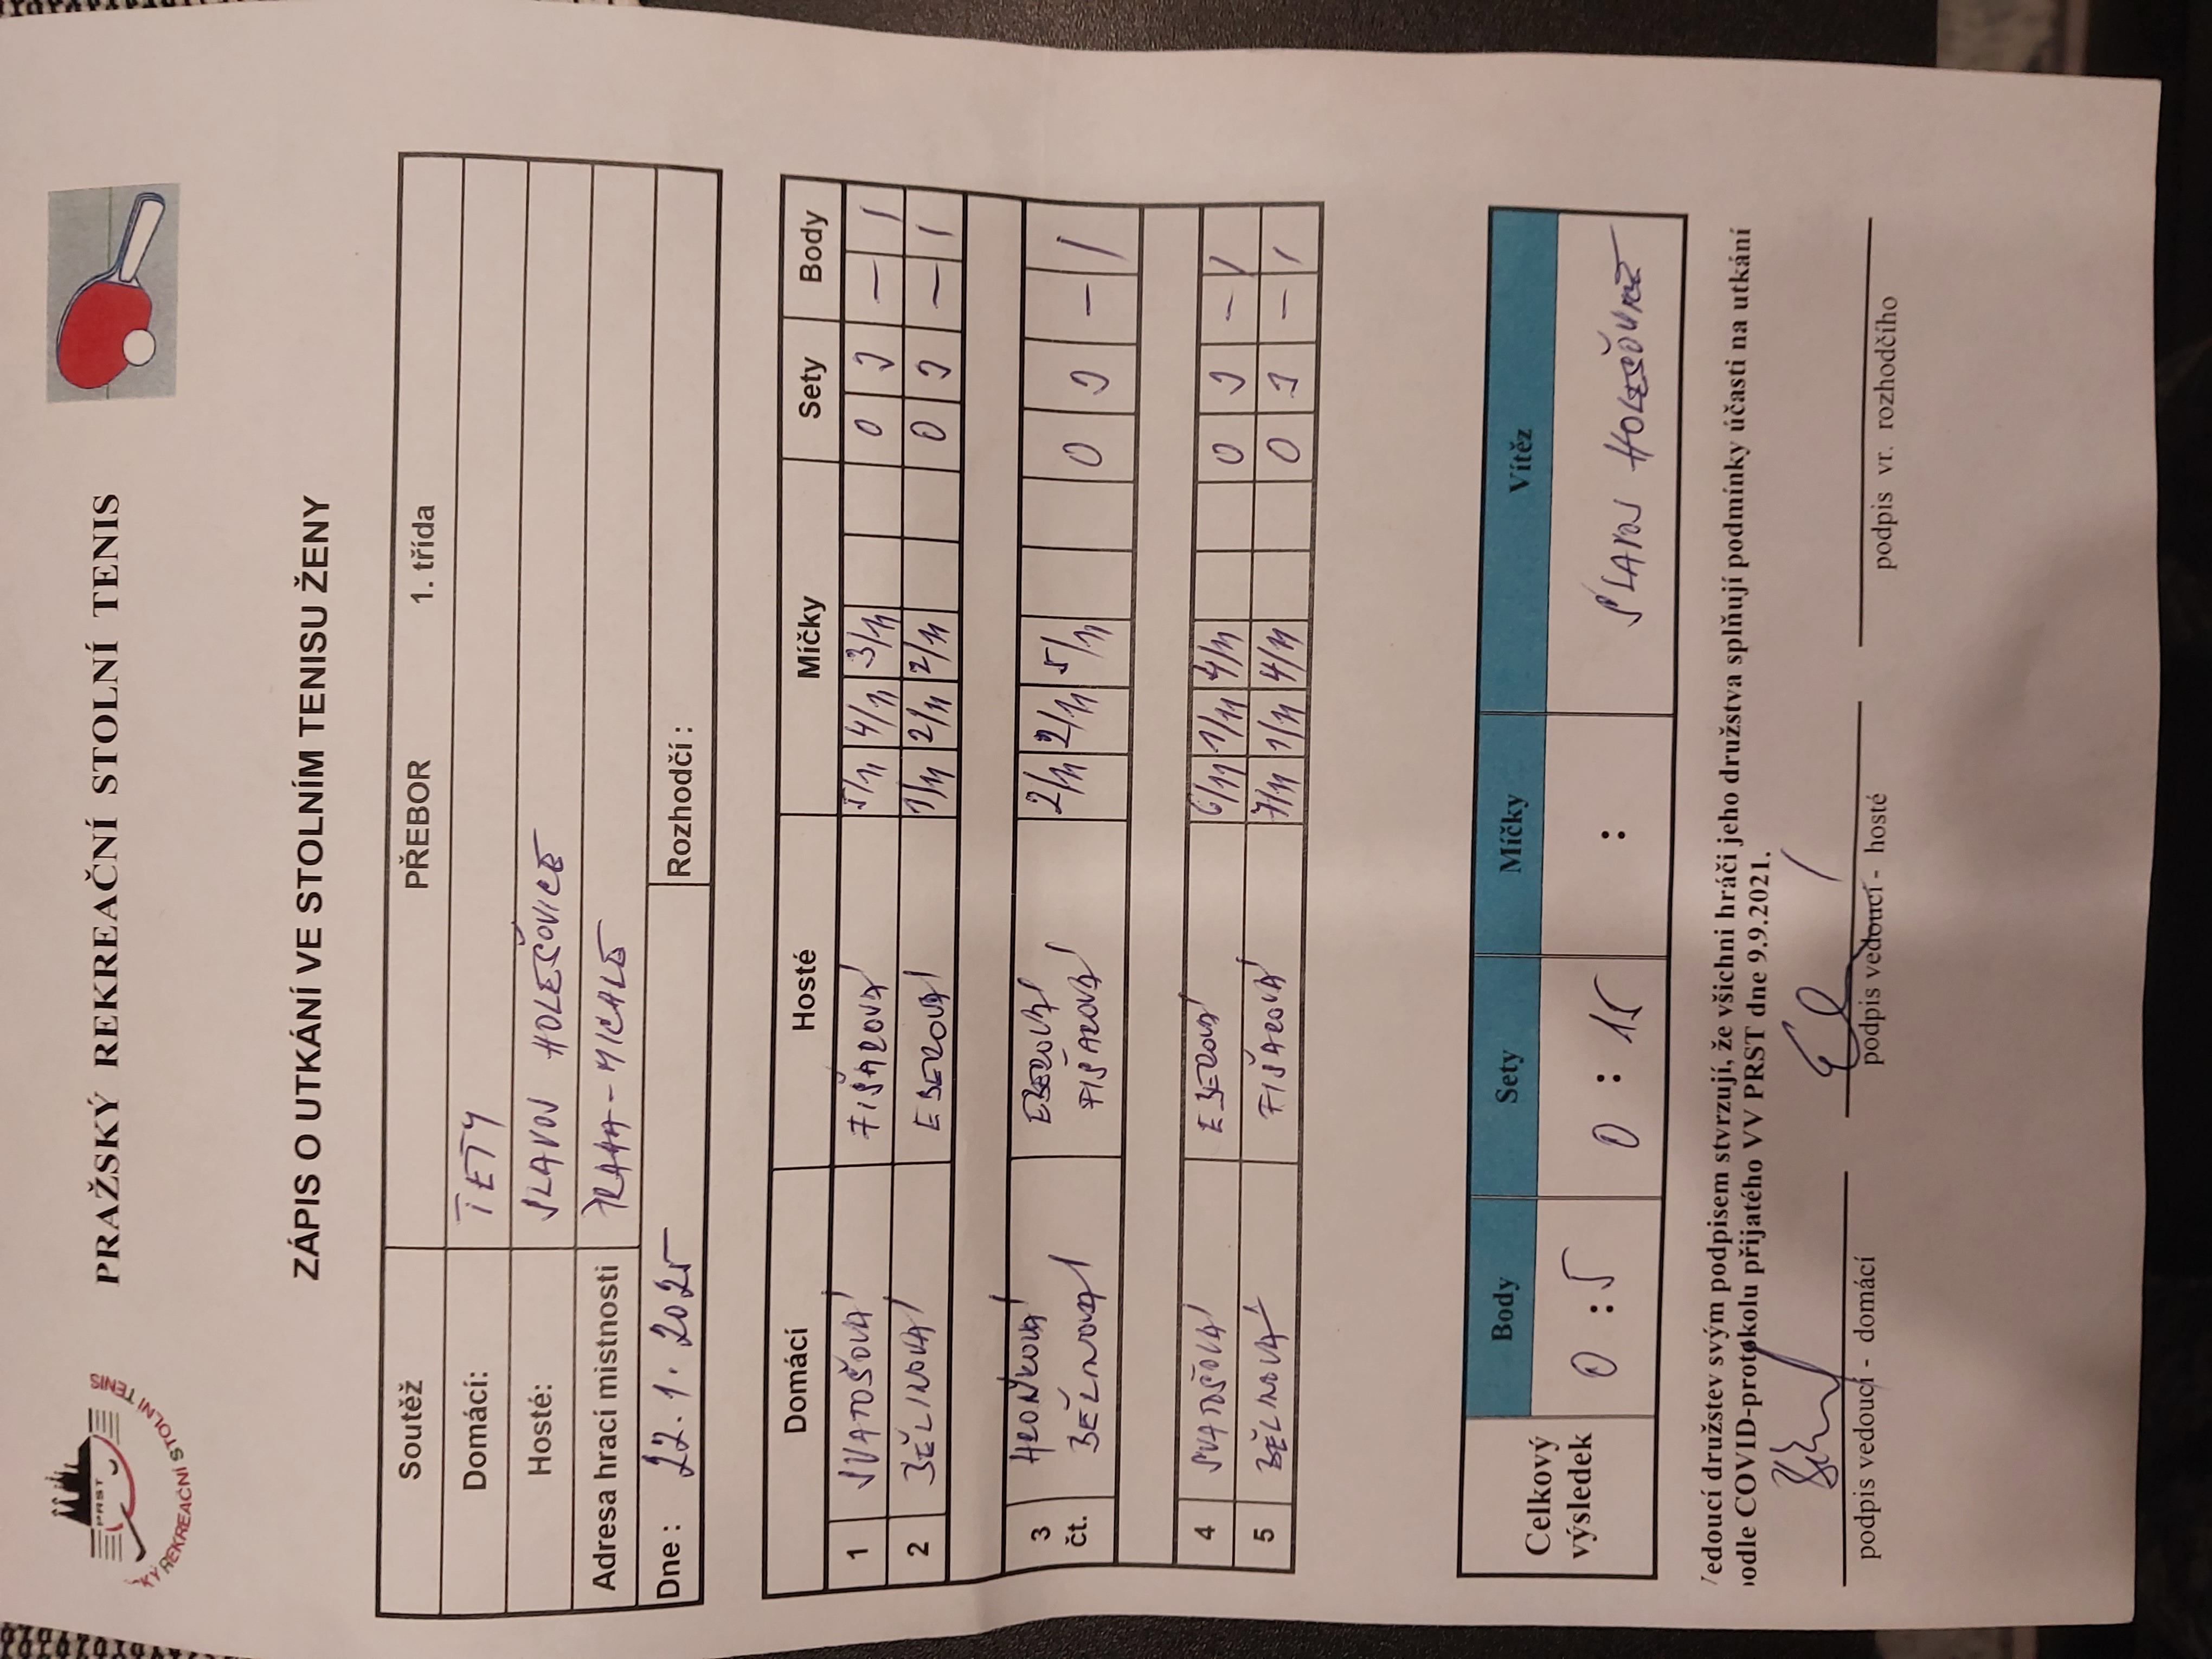 PRAŽSKÝ REKREAČNÍ STOLNÍ TENIS
PRST
REKREAČNÍ STOLNÍ TENIS
ZÁPIS O UTKÁNÍ VE STOLNÍM TENISU ŽENY
Soutěž PŘEBOR 1. třída
Domácí: TETY
Hosté: SLAVOJ HOLEŠOVICE
Adresa hrací mistnosti PRAHA-MICHLE
Dne : 22.1.2025 Rozhodčí :
Domácí Hosté Míčky Sety Body
1 SVATOŠOVÁ FIŠAROVÁ 5/11 4/11 3/11 0 3 – 1
2 BĚLINOVÁ EBEROVÁ 1/11 2/11 2/11 0 3 – 1
3 HRONKOVÁ EBEROVÁ 2/11 2/11 5/11 0 3 – 1
čt. BĚLINOVÁ FIŠAROVÁ
4 SVATOŠOVÁ EBEROVÁ 6/11 1/11 4/11 0 3 – 1
5 BĚLINOVÁ FIŠAROVÁ 7/11 1/11 4/11 0 3 – 1
Celkový výsledek Body Sety Míčky Vítěz
0 : 5 0 : 15 : SLAVOJ HOLEŠOVICE
Vedoucí družstev svým podpisem stvrzují, že všichni hráči jeho družstva splňují podmínky účasti na utkání
podle COVID-protokolu přijatého VV PRST dne 9.9.2021.
podpis vedoucí - domácí podpis vedoucí - hosté podpis vr. rozhodčího